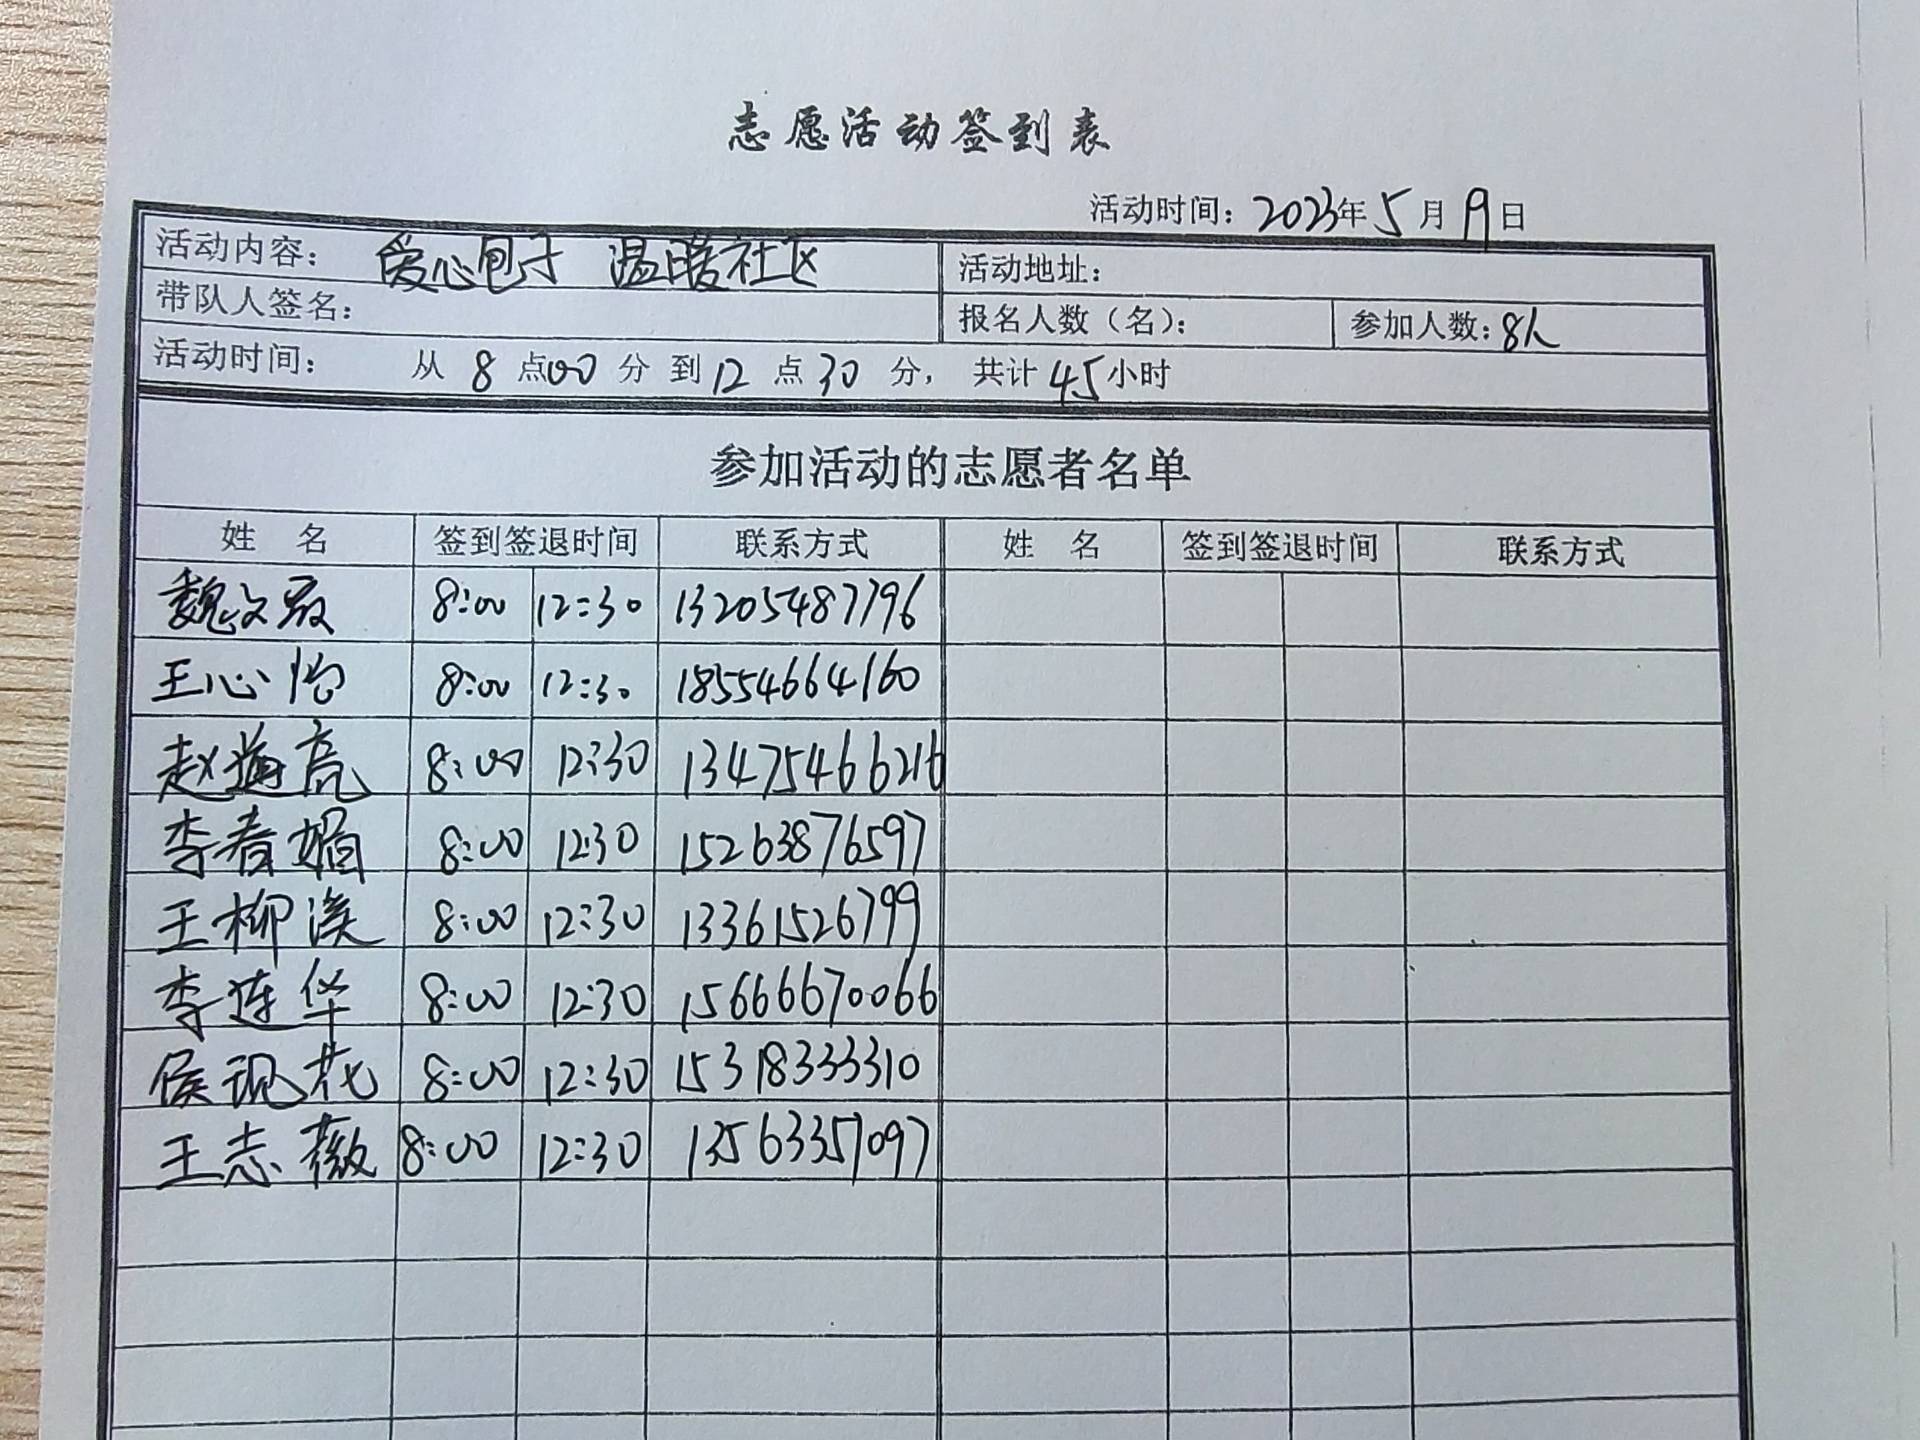 志愿活动签到表
活动时间：2023年5月19日
活动内容： 爱心包子 温暖社区 活动地址：
带队人签名： 报名人数（名）： 参加人数：8人
活动时间： 从 8 点00分 到12 点 30 分， 共计 4.5小时
参加活动的志愿者名单
姓 名 签到签退时间 联系方式 姓 名 签到签退时间 联系方式
魏文 8:00 12:30 13205487796
王心怡 8:00 12:30 18554664160
赵海亮 8:00 12:30 13475466216
李春娟 8:00 12:30 15263876597
王柳溪 8:00 12:30 13361526799
李连华 8:00 12:30 15666670066
侯现花 8:00 12:30 15318333310
王志薇 8:00 12:30 13563357097